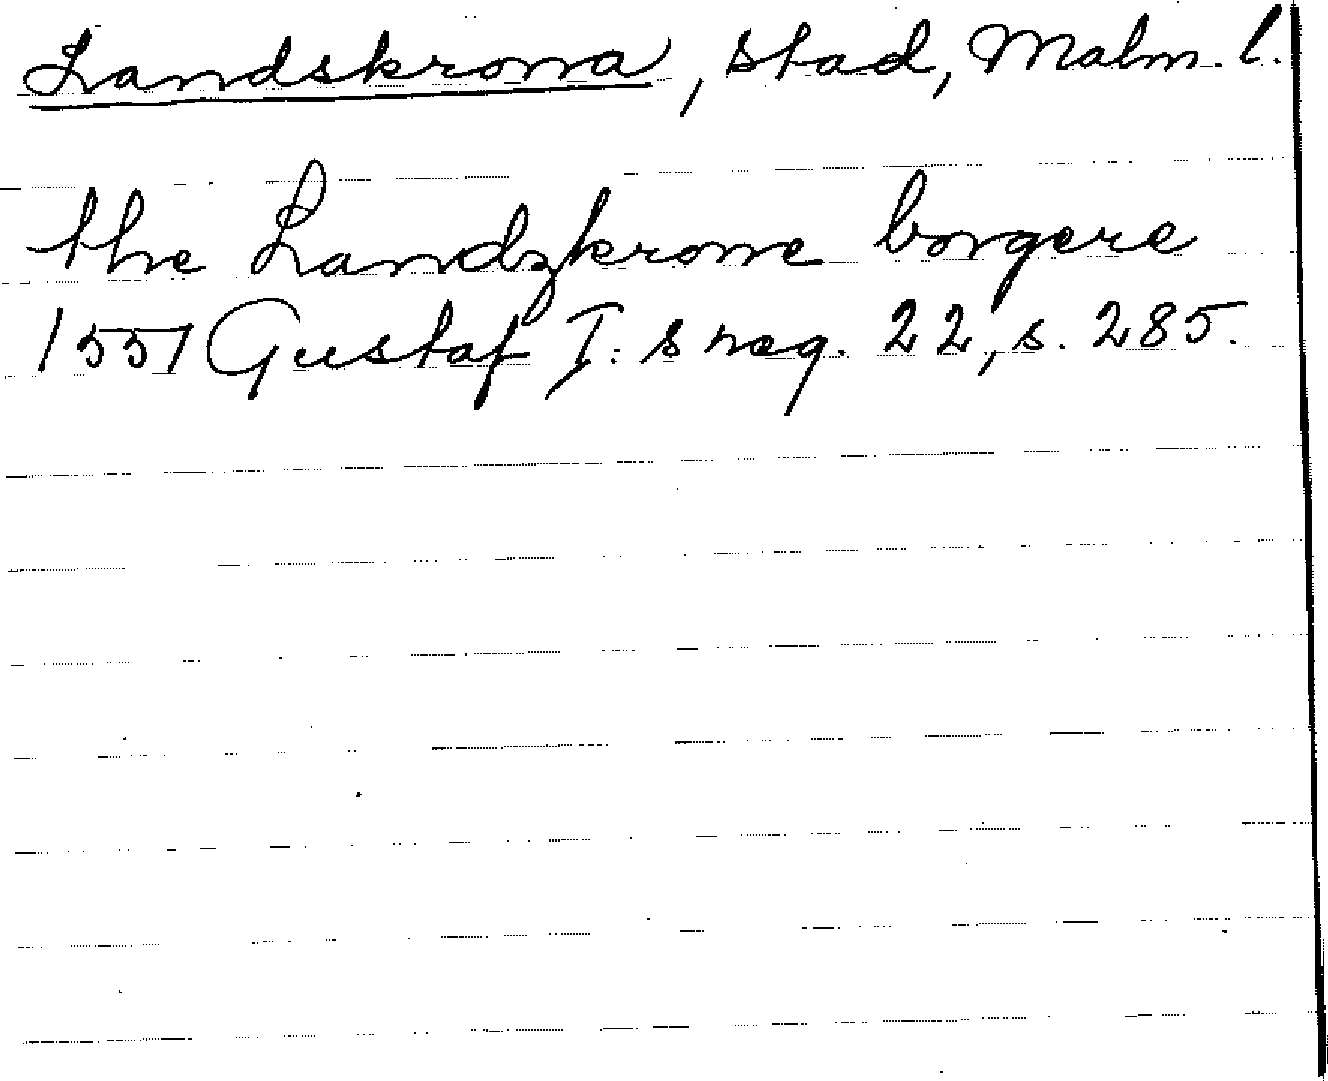 Landskrona, stad, Malm. l.
the Landzkrone borgere
1551 Gustaf I:s reg. 22, s. 285.